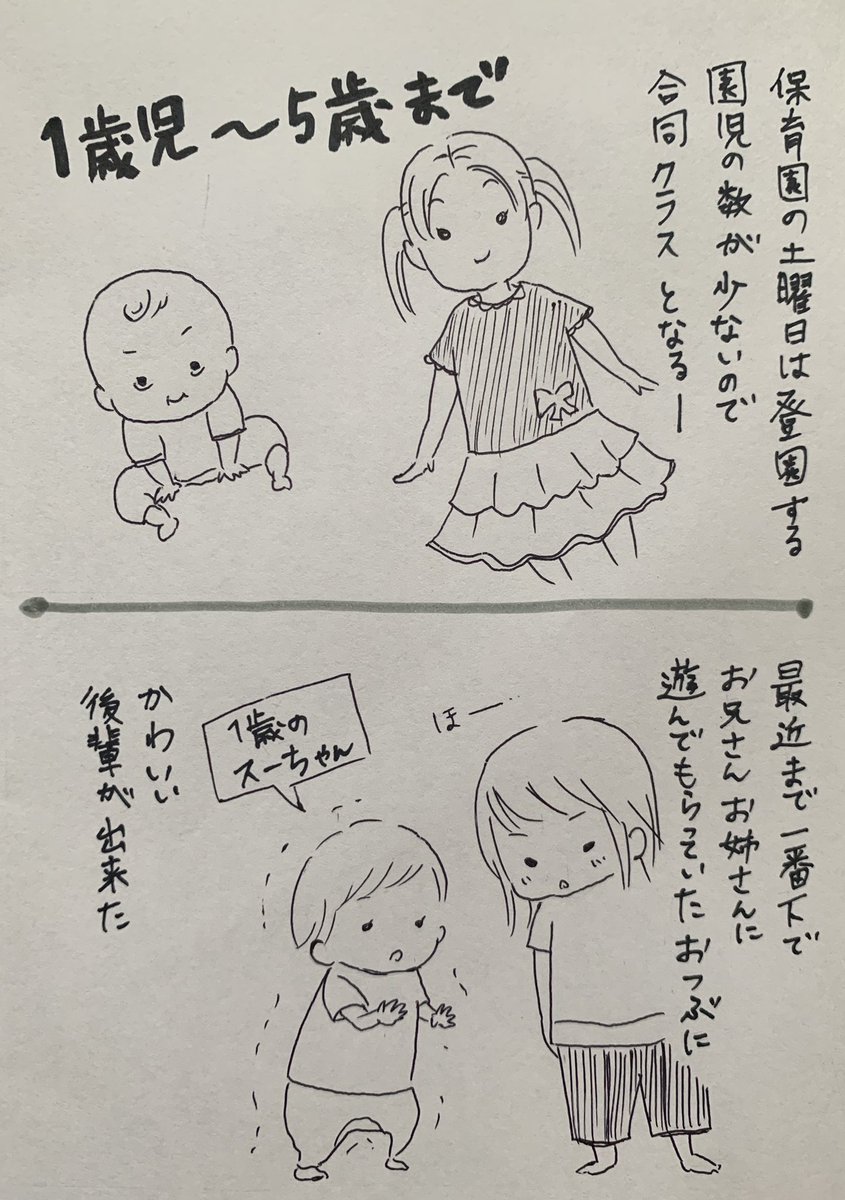 保育園の土曜日は登園する
園児の数が少ないので
合同クラスとなるー
1歳児〜5歳まで
最近まで一番下で
お兄さんお姉さんに
遊んでもらっていたおつぶに
ほー…
1歳の
スーちゃん
かわいい
後輩が出来た